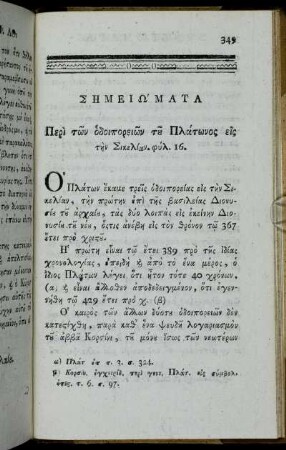 349
ΣΗΜΕΙΩ'ΜΑΤΑ
Περὶ τῶν ὁδοιπορειῶν τȣ͂ Πλάτωνος εἰς
τὴν Σικελίαν. φύλ. 16.
Ὁ Πλάτων ἔκαμε τρεῖς ὁδοιπορείας εἰς τὴν Σι-
κελίαν, τὴν πρώτην ἐπὶ τῆς βασιλείας Διονυ-
σίȣ τȣ͂ ἀρχαίȣ, τὰς δύο λοιπὰς εἰς ἐκείνην Διο-
νυσίȣ τȣ͂ νέȣ, ὅςτις ἀνέβη εἰς τὸν θρόνον τῷ 367
ἔτει πρὸ χριςȣ͂.
Ἡ πρώτη εἶναι τȣ͂ ἔτει 389 πρὸ τῆς ἰδίας
χρονολογίας, ἐπειδὴ ἢ ἀπὸ τὸ ἕνα μέρος, ὁ
ἴδιος Πλάτων λέγει ὅτι ἦτον τότε 40 χρόνων,
(α) ἢ εἶναι ἄλλοθεν ἀποδεδειγμένον, ὅτι ἐγεν-
νήθη τῷ 429 ἔτει πρὸ χ. (β)
Ὁ καιρὸς τῶν ἄλλων δύοτη ὁδοιπορειῶν δὲν
κατεςήθη, παρὰ καθ' ἕνα ψευδῆ λογαριασμὸν
τȣ͂ ἀββᾶ Κορσίνι, τȣ͂ μόνȣ ἴσως τῶν νεωτέρων
α) Πλάτ. ἐπ. τ. 3. σ. 324.
β) Κορσίν. περὶ γενν. Πλάτ. εἰς σύμβολ.
τ. 6. σ. 97.